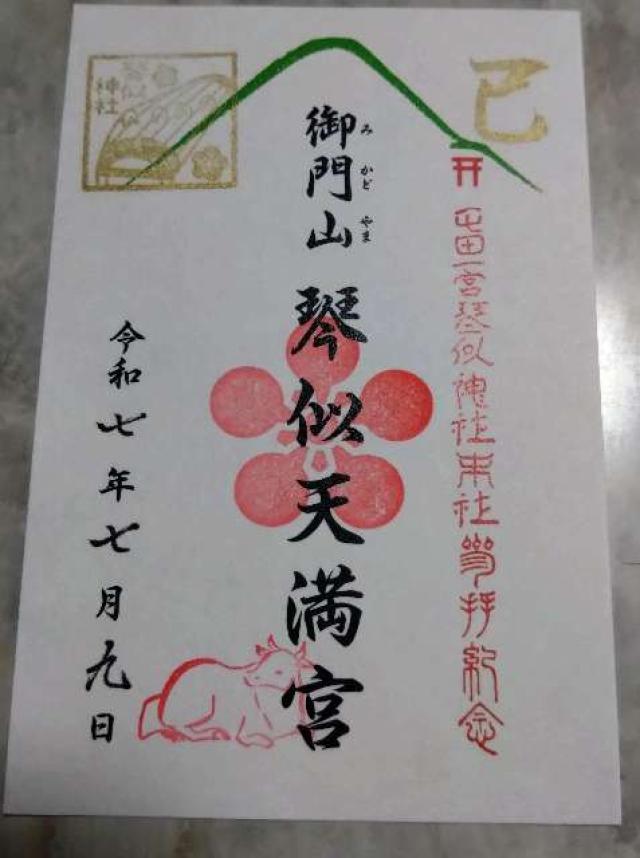 巳
屯田一宮琴似神社末社参拝紀念
御門山
みかどやま
琴似天満宮
令和七年七月九日
琴似
神社